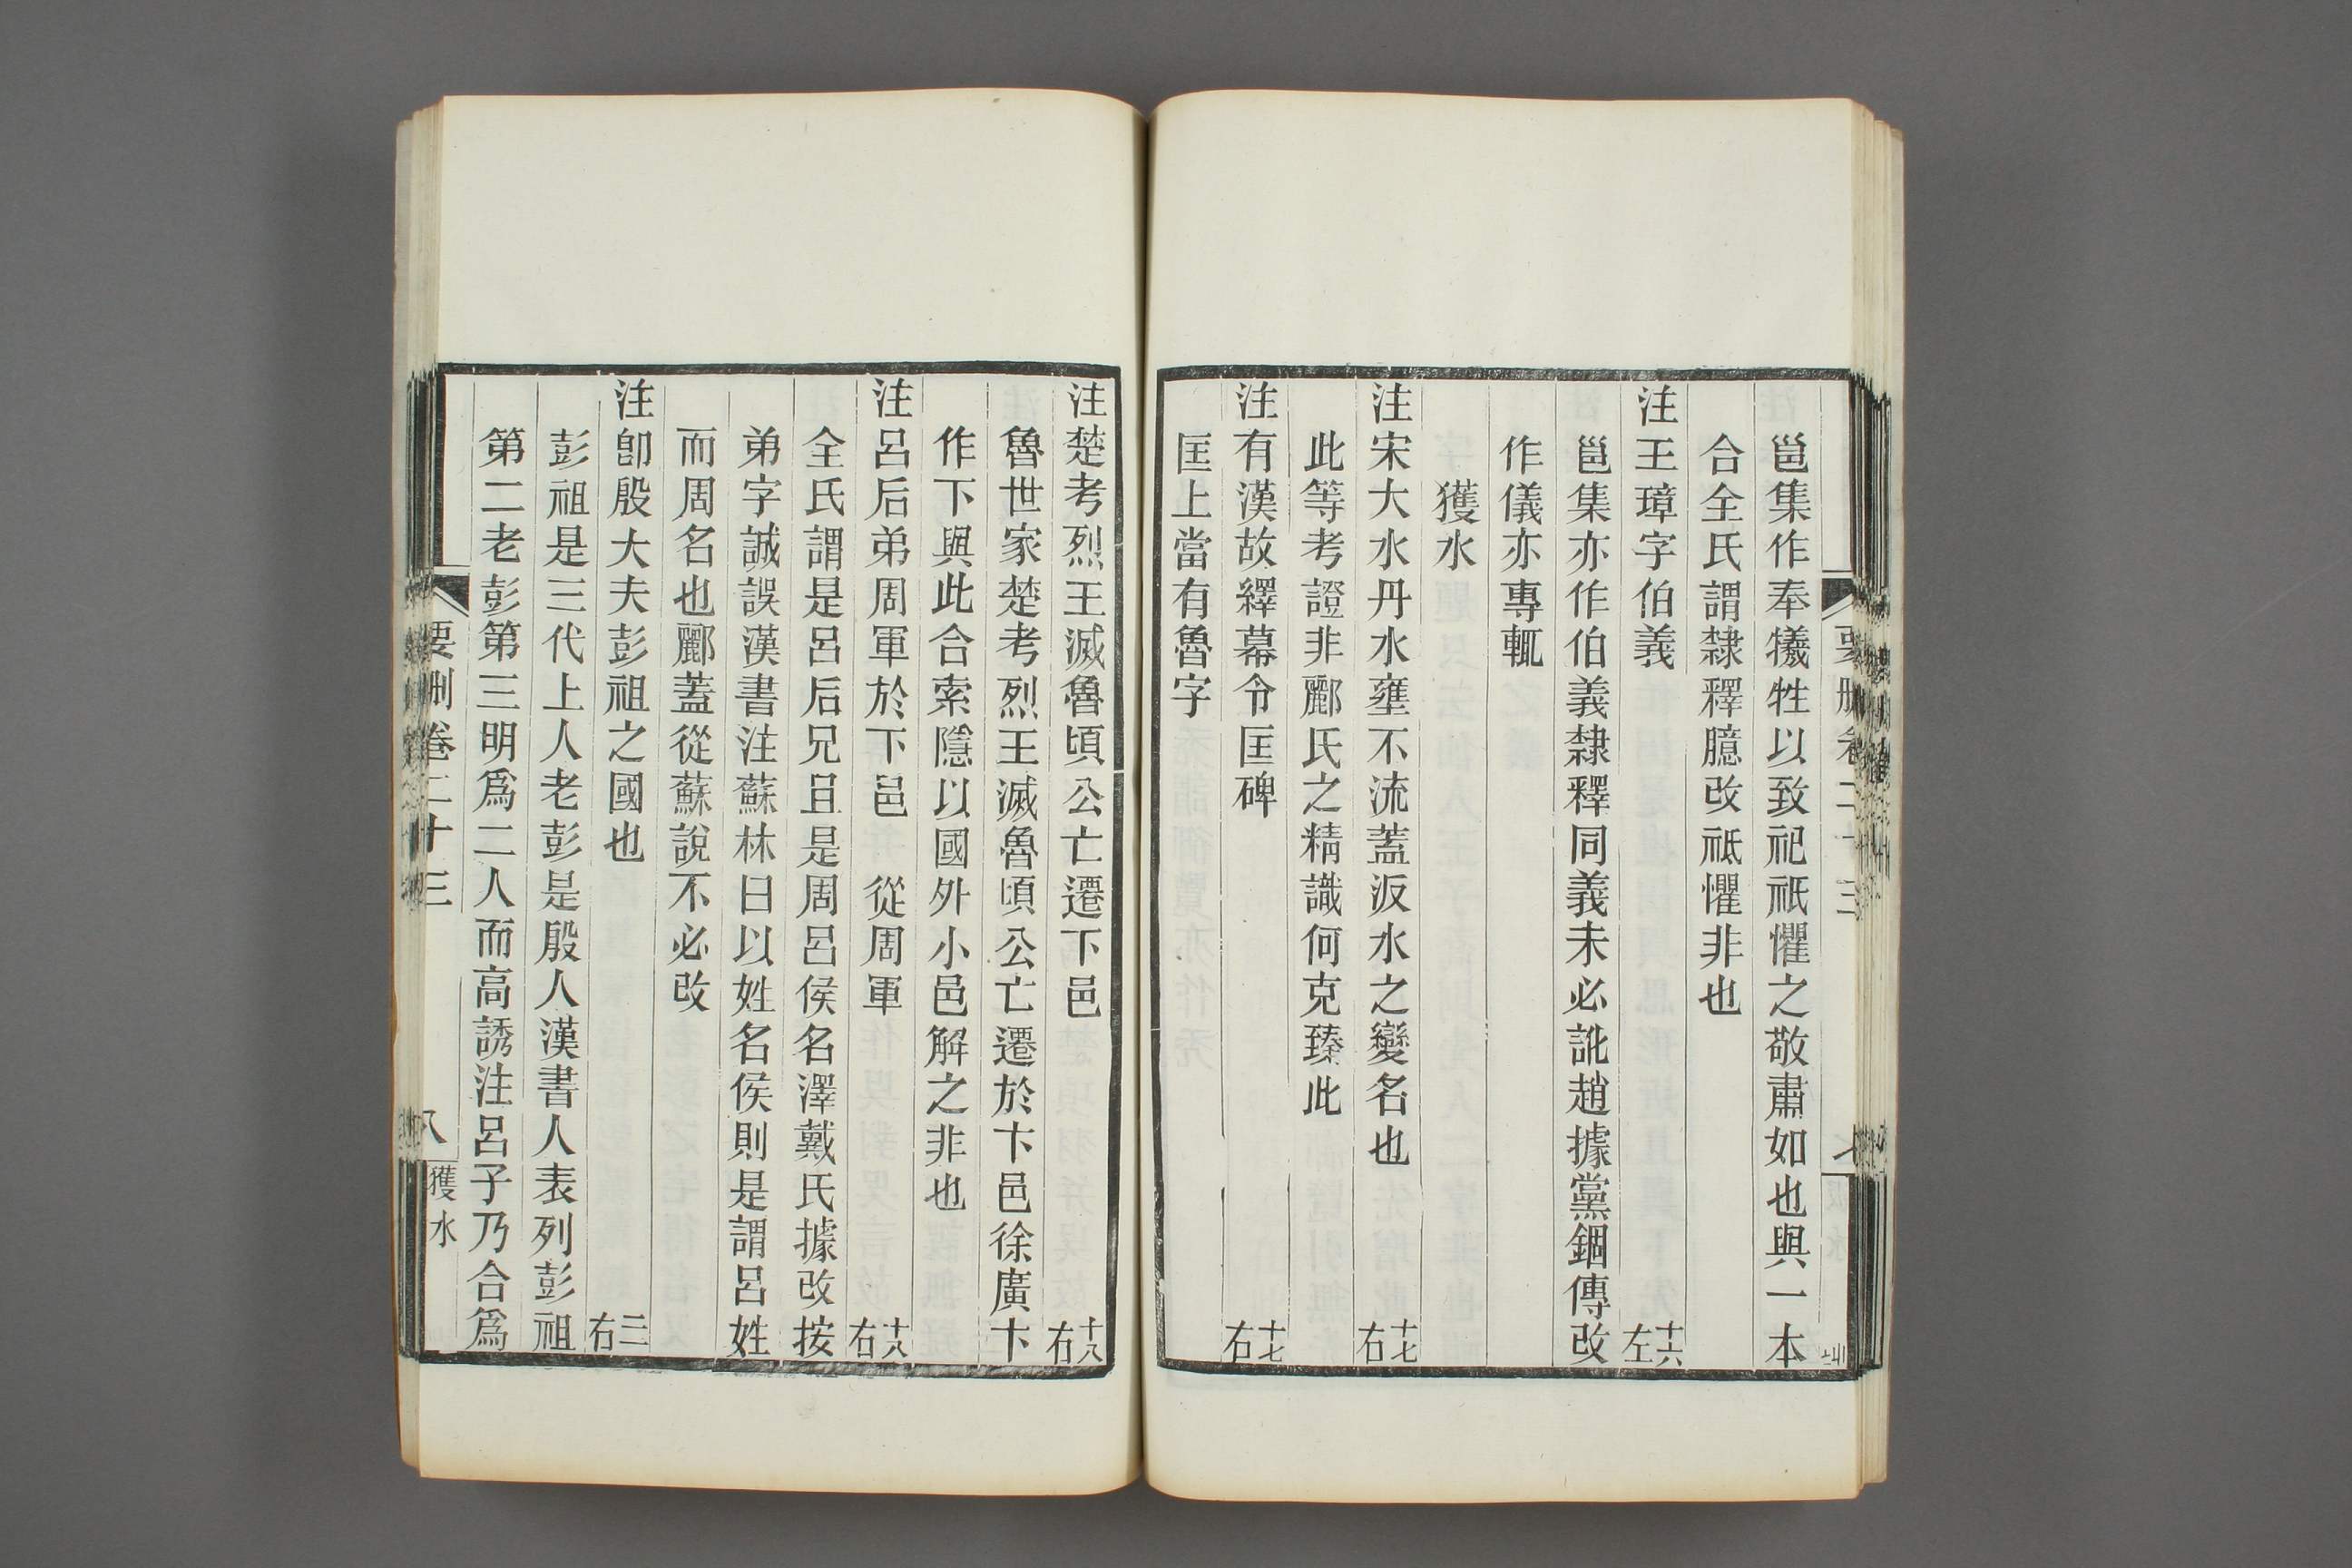 邕集作奉犧牲以致祀祇懼之敬肅如也與一本
合全氏謂隸釋臆改祗懼非也
注王璋字伯義 十六左
邕集亦作伯義隸釋同義未必訛趙據黨錮傳改
作儀亦專輒
獲水
注宋大水丹水壅不流蓋汳水之變名也 十七右
此等考證非酈氏之精識何克臻此
注有漢故繹幕令匡碑 十七右
匡上當有魯字
注楚考烈王滅魯頃公亡遷下邑 十八右
魯世家楚考烈王滅魯頃公亡遷於卞邑徐廣卞
作下與此合索隱以國外小邑解之非也
注呂后弟周軍於下邑 從周軍 十八右
全氏謂是呂后兄且是周呂侯名澤戴氏據改按
弟字誠誤漢書注蘇林曰以姓名侯則是謂呂姓
而周名也酈蓋從蘇說不必改
注卽殷大夫彭祖之國也 二二右
彭祖是三代上人老彭是殷人漢書人表列彭祖
第二老彭第三明爲二人而高誘注呂子乃合爲
要刪卷二十三
八
獲水